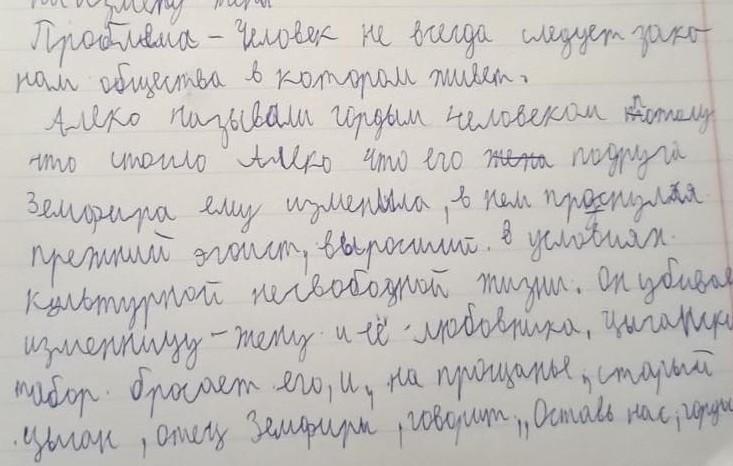 на измену жены
Проблема - Человек не всегда следует зако-
нам общества в котором живет.
Алеко называли гордым человеком потому
что стоило Алеко что его жена подруга
Земфира ему изменила, в нем проснулся
прежний эгоист, выросший в условиях
культурной несвободной жизни. Он убивае
изменницу - жену и её любовника, цыганский
табор бросает его, и, на прощанье, старый
цыган, отец Земфиры, говорит „Оставь нас, горды